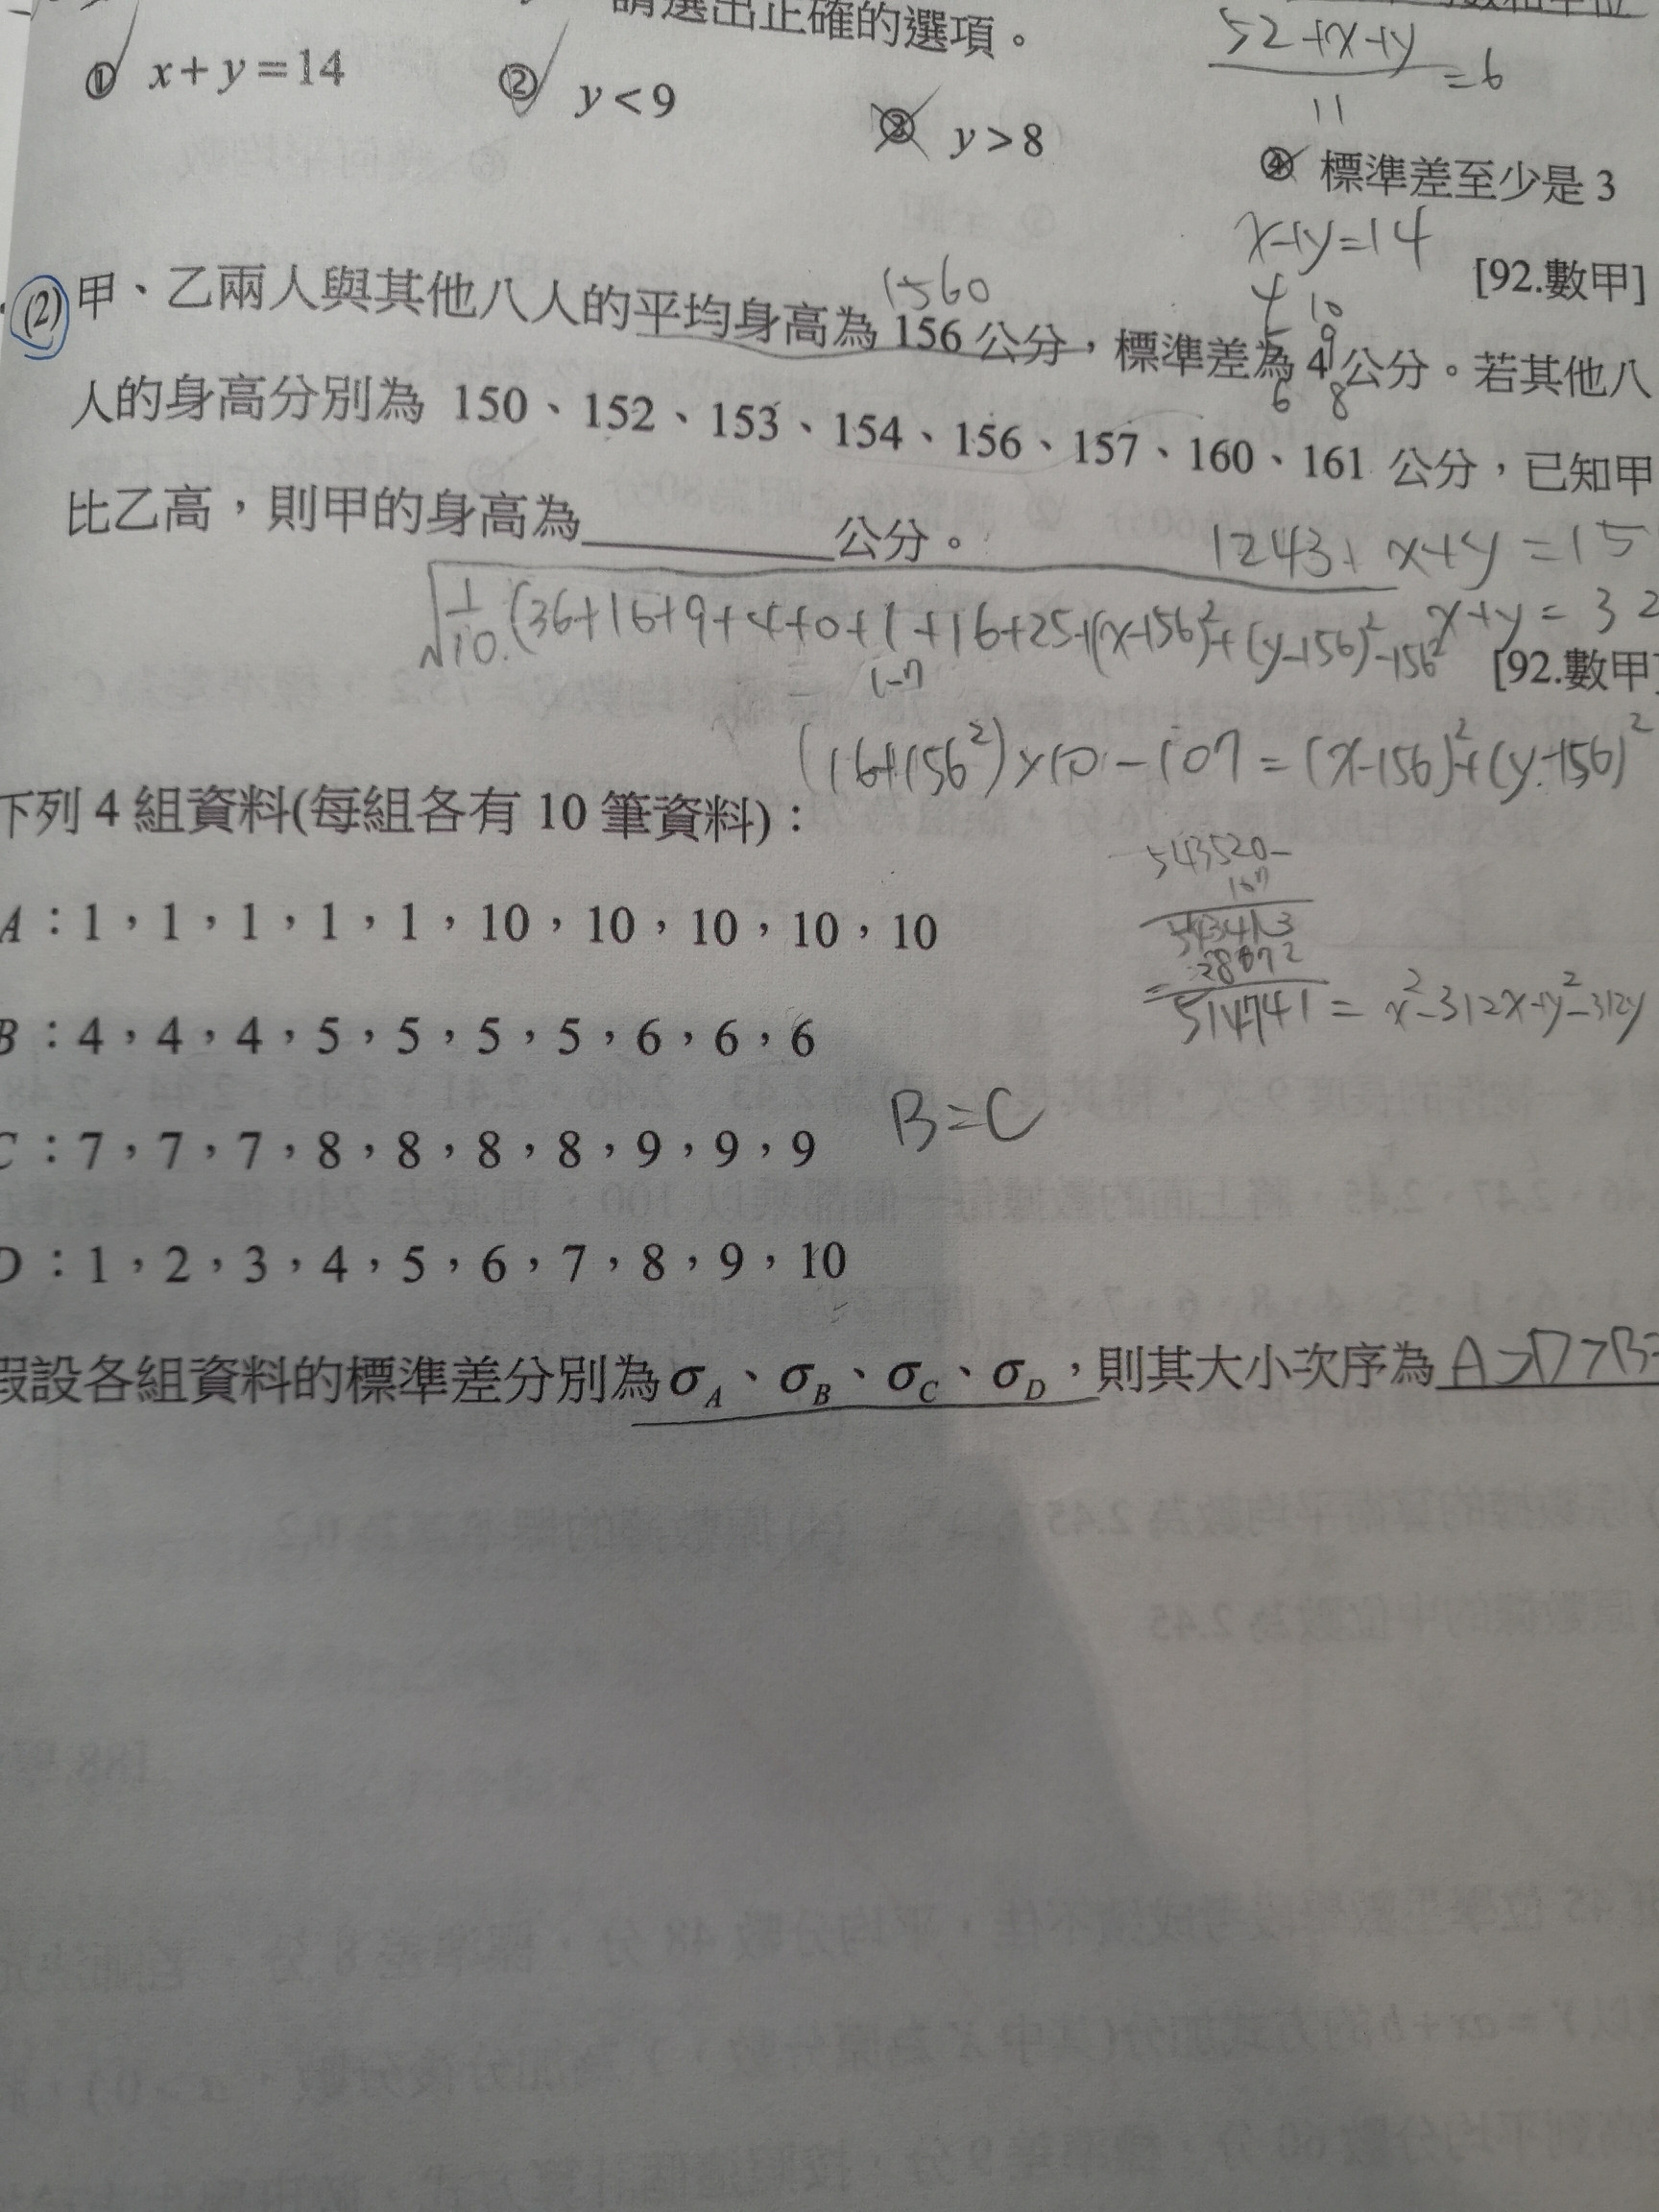 請選出正確的選項。
52+x+y
11
=6
① x+y=14 ② y<9 ③ y>8 ④ 標準差至少是 3
x+y=14
[92.數甲]
4 10
5 9
6 8
1560
(2) 甲、乙兩人與其他八人的平均身高為 156 公分，標準差為 4 公分。若其他八
人的身高分別為 150、152、153、154、156、157、160、161 公分，已知甲
比乙高，則甲的身高為 公分。
1243+x+y=15
√1/10.(36+16+9+4+0+1+16+25+(x-156)²+(y-156)²-156²
x+y=32
107
[92.數甲]
(16+156²)×10-107=(x-156)²+(y-156)²
下列 4 組資料(每組各有 10 筆資料)：
543520-
107
543413
514741=x²-312x+y²-312y
A：1，1，1，1，1，10，10，10，10，10
B：4，4，4，5，5，5，5，6，6，6
B=C
C：7，7，7，8，8，8，8，9，9，9
D：1，2，3，4，5，6，7，8，9，10
假設各組資料的標準差分別為 σA、σB、σC、σD，則其大小次序為 A>D>B=